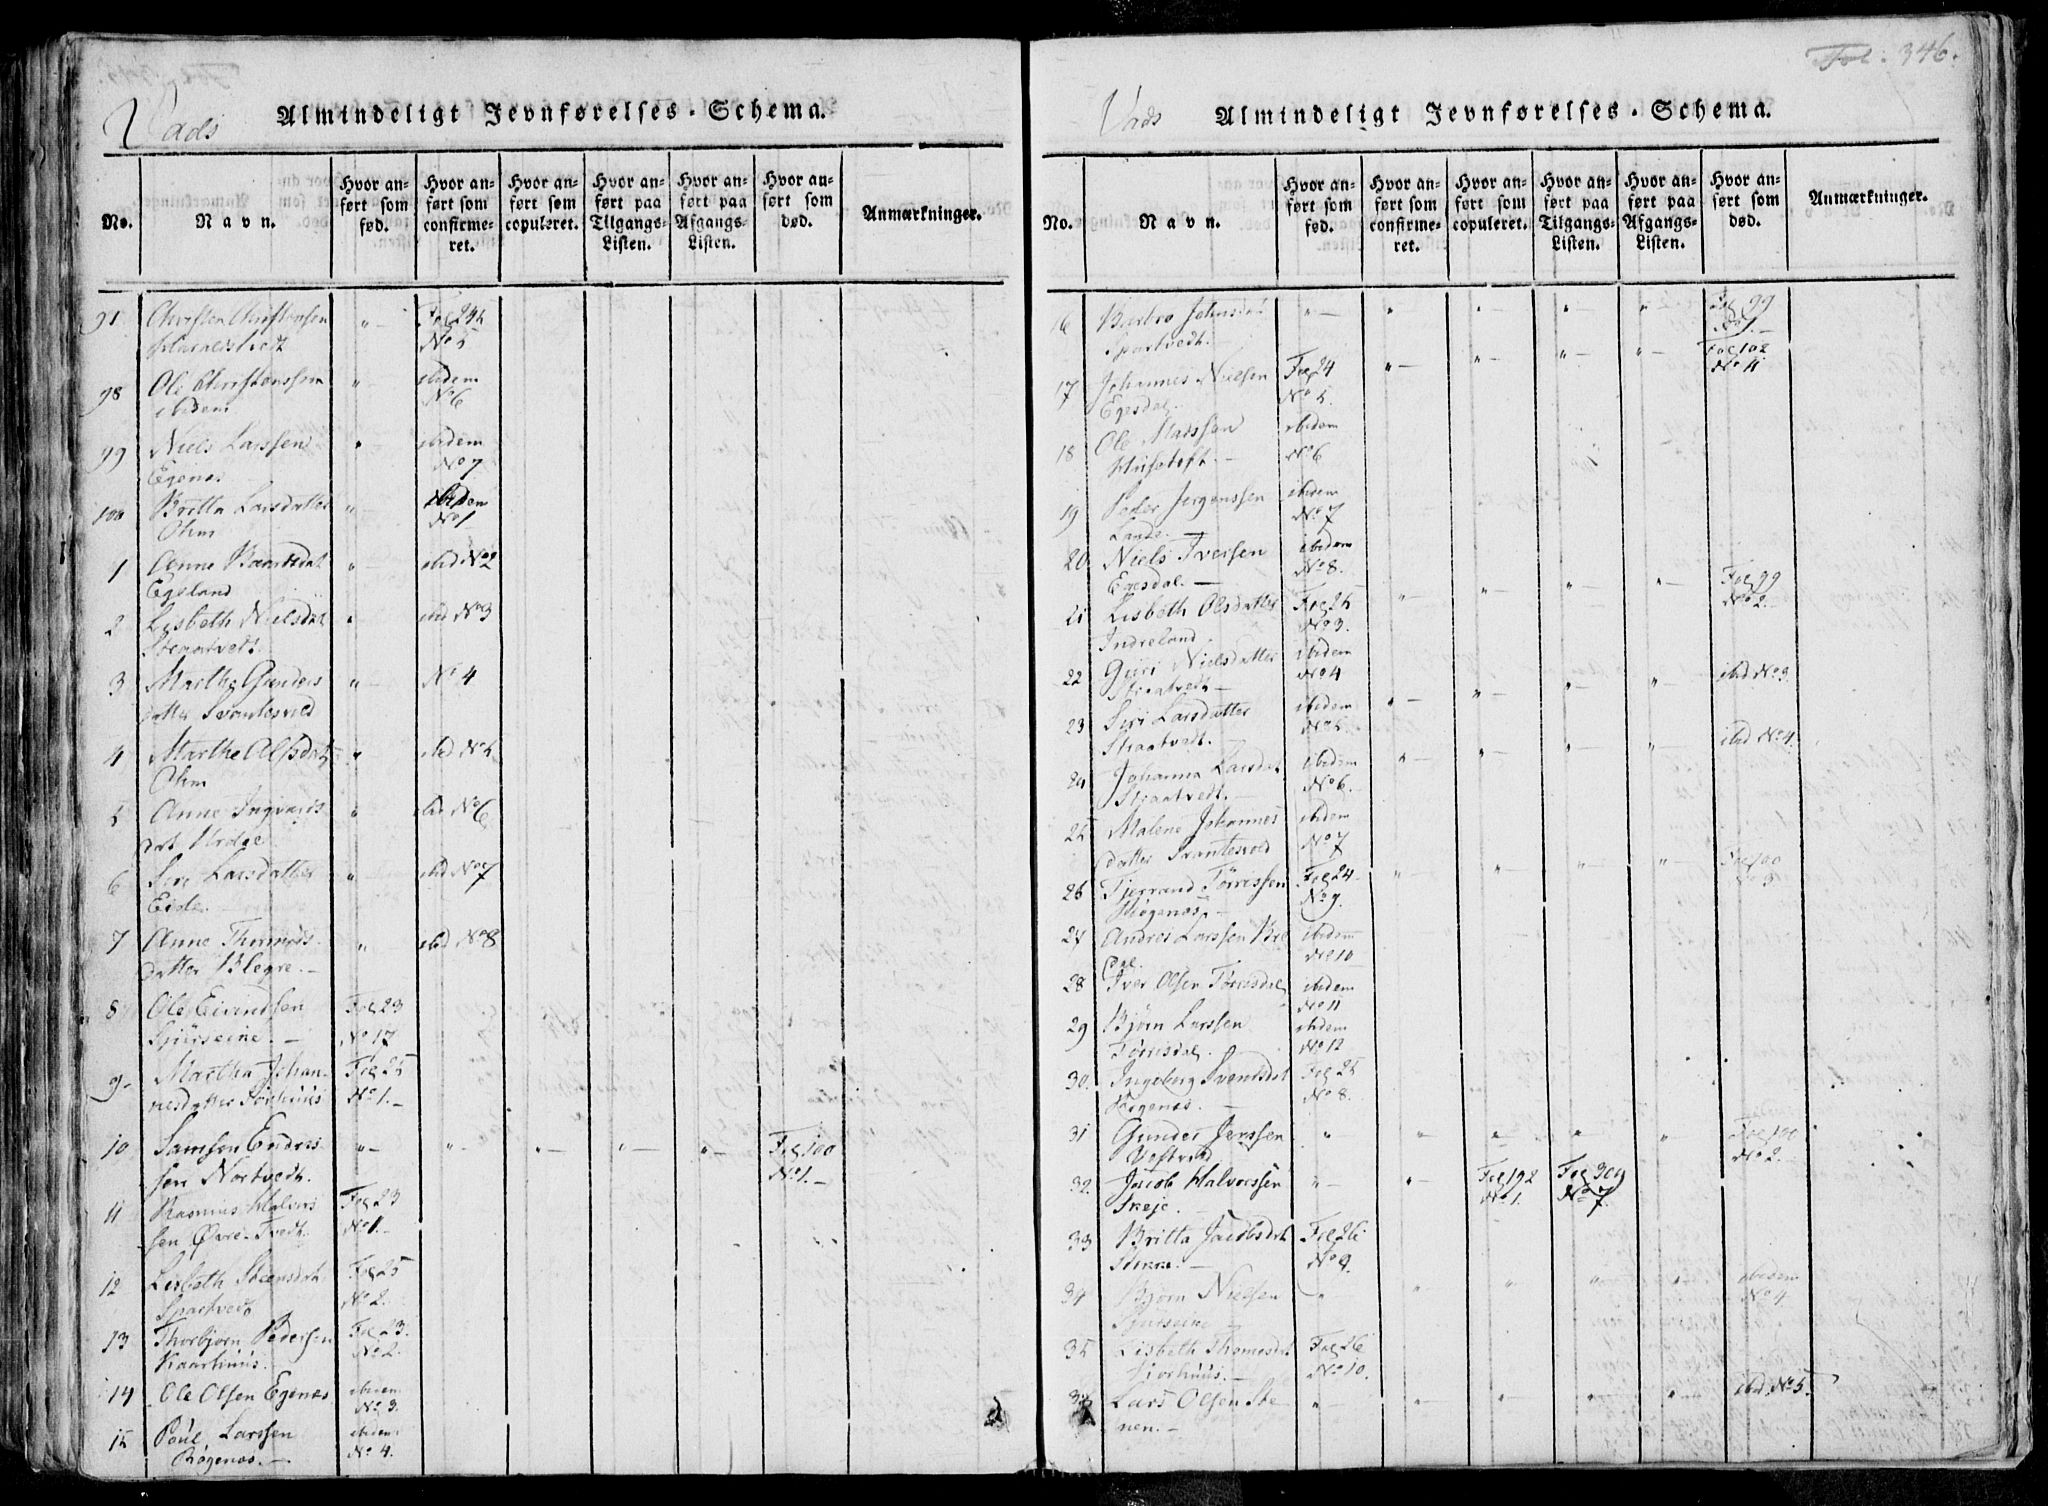 Vads Almindeligt Jevnførelses-Schema.
No.
Navn.
Hvor anført som fød.
Hvor anført som confirmeret.
Hvor anført som copuleret.
Hvor anført paa Tilgangs-Listen.
Hvor anført paa Afgangs-Listen.
Hvor anført som død.
Anmærkninger.
Christen Christensen " Fol 24
98 Ole Christenssen " ibidem
ibidem No 6
99 Niels Larssen " ibidem
Egenæs No 7
100 Britta Larsdatter " ibidem
Ohm No 1
1 Anne " ibid No 2
Egeland
2 Lisbeth Nielsdat " ibid No 3
Straatvedt
3 Martha Gunders " No 4
datter Svantesvold
4 Marthe Olsdat " ibid No 5
Ohm
5 Anne Ingvards " ibid No 6
dat
6 Siri Larsdatter " ibid No 7
Eide
7 Anne Thomas " ibid No 8
datter Blegre.
8 Ole Eivindsen Fol 23
No 17
9 Martha Johan- Fol 25
nesdatter No 1.
10 Samson Endres " " " " " Fol 100
sen Nortvedt. No 1.
11 Rasmus Halvors Fol 23
sen Øvre-Tvedt. No 1.
12 Lisbeth Fol 25
Spartvedt No 2.
13 Thorbjørn Pedersen Fol 23.
Kaarhuus. No 2.
14 Ole Olsen Egenæs ibidem
No 3.
15 Poul Larssen ibidem
Røgenæs. No 4.
Fol. 346.
Vads Almindeligt Jevnførelses-Schema.
No.
Navn.
Hvor anført som fød.
Hvor anført som confirmeret.
Hvor anført som copuleret.
Hvor anført paa Tilgangs-Listen.
Hvor anført paa Afgangs-Listen.
Hvor anført som død.
Anmærkninger.
16 Barbro Johnsdat " " " " " Fol 99
Spartvedt. No 1.
17 Johannes Nielsen Fol 24 " " " " Fol 102
Egesdal. No 5. No 11
18 Ole Madssen ibidem
No 6
19 Peder Jørgenssen ibidem
Lande. No 7
20 Niels Iversen ibidem
Egesdal. No 8.
21 Lisbeth Olsdatter Fol 25 " " " " Fol 99
Indreland. No 3. No 2.
22 Guri Nielsdatter ibidem
Straatvedt No 4
23 Siri Larsdatter ibidem " " " " ibid No 3.
Straatvedt. No 5.
24 Johanna Larsdat ibidem " " " " ibid No 4.
Straatvedt. No 6.
25 Malene Johannes ibidem
datter Svantesvold No 7
26 Tjerrand Tørressen Fol 24 " " " " Fol 100
Røgenæs. No 9. No 3
27 Andres Larssen Bre ibidem
dal. No 10
28 Iver Olsen Tørrisdal ibidem
No 11
29 Bjørn Larssen ibidem
Tørrisdal. No 12
30. Ingeborg Svendsdat Fol 25
Røgenæs. No 8.
31 Gunder Jenssen " " " " " Fol 100
No 2.
32. Jacob Halvorssen " " Fol 192 Fol 309
Skeje. No 1. No 7.
33 Britta Jacobsdat Fol 26
No 9.
34 Bjørn Nielsen " " " " " ibidem
No 4
35 Lisbeth Thomasdat Fol 26
No 10.
36 Lars Olsen Ste- " " " " " ibid. No 5.
nen.